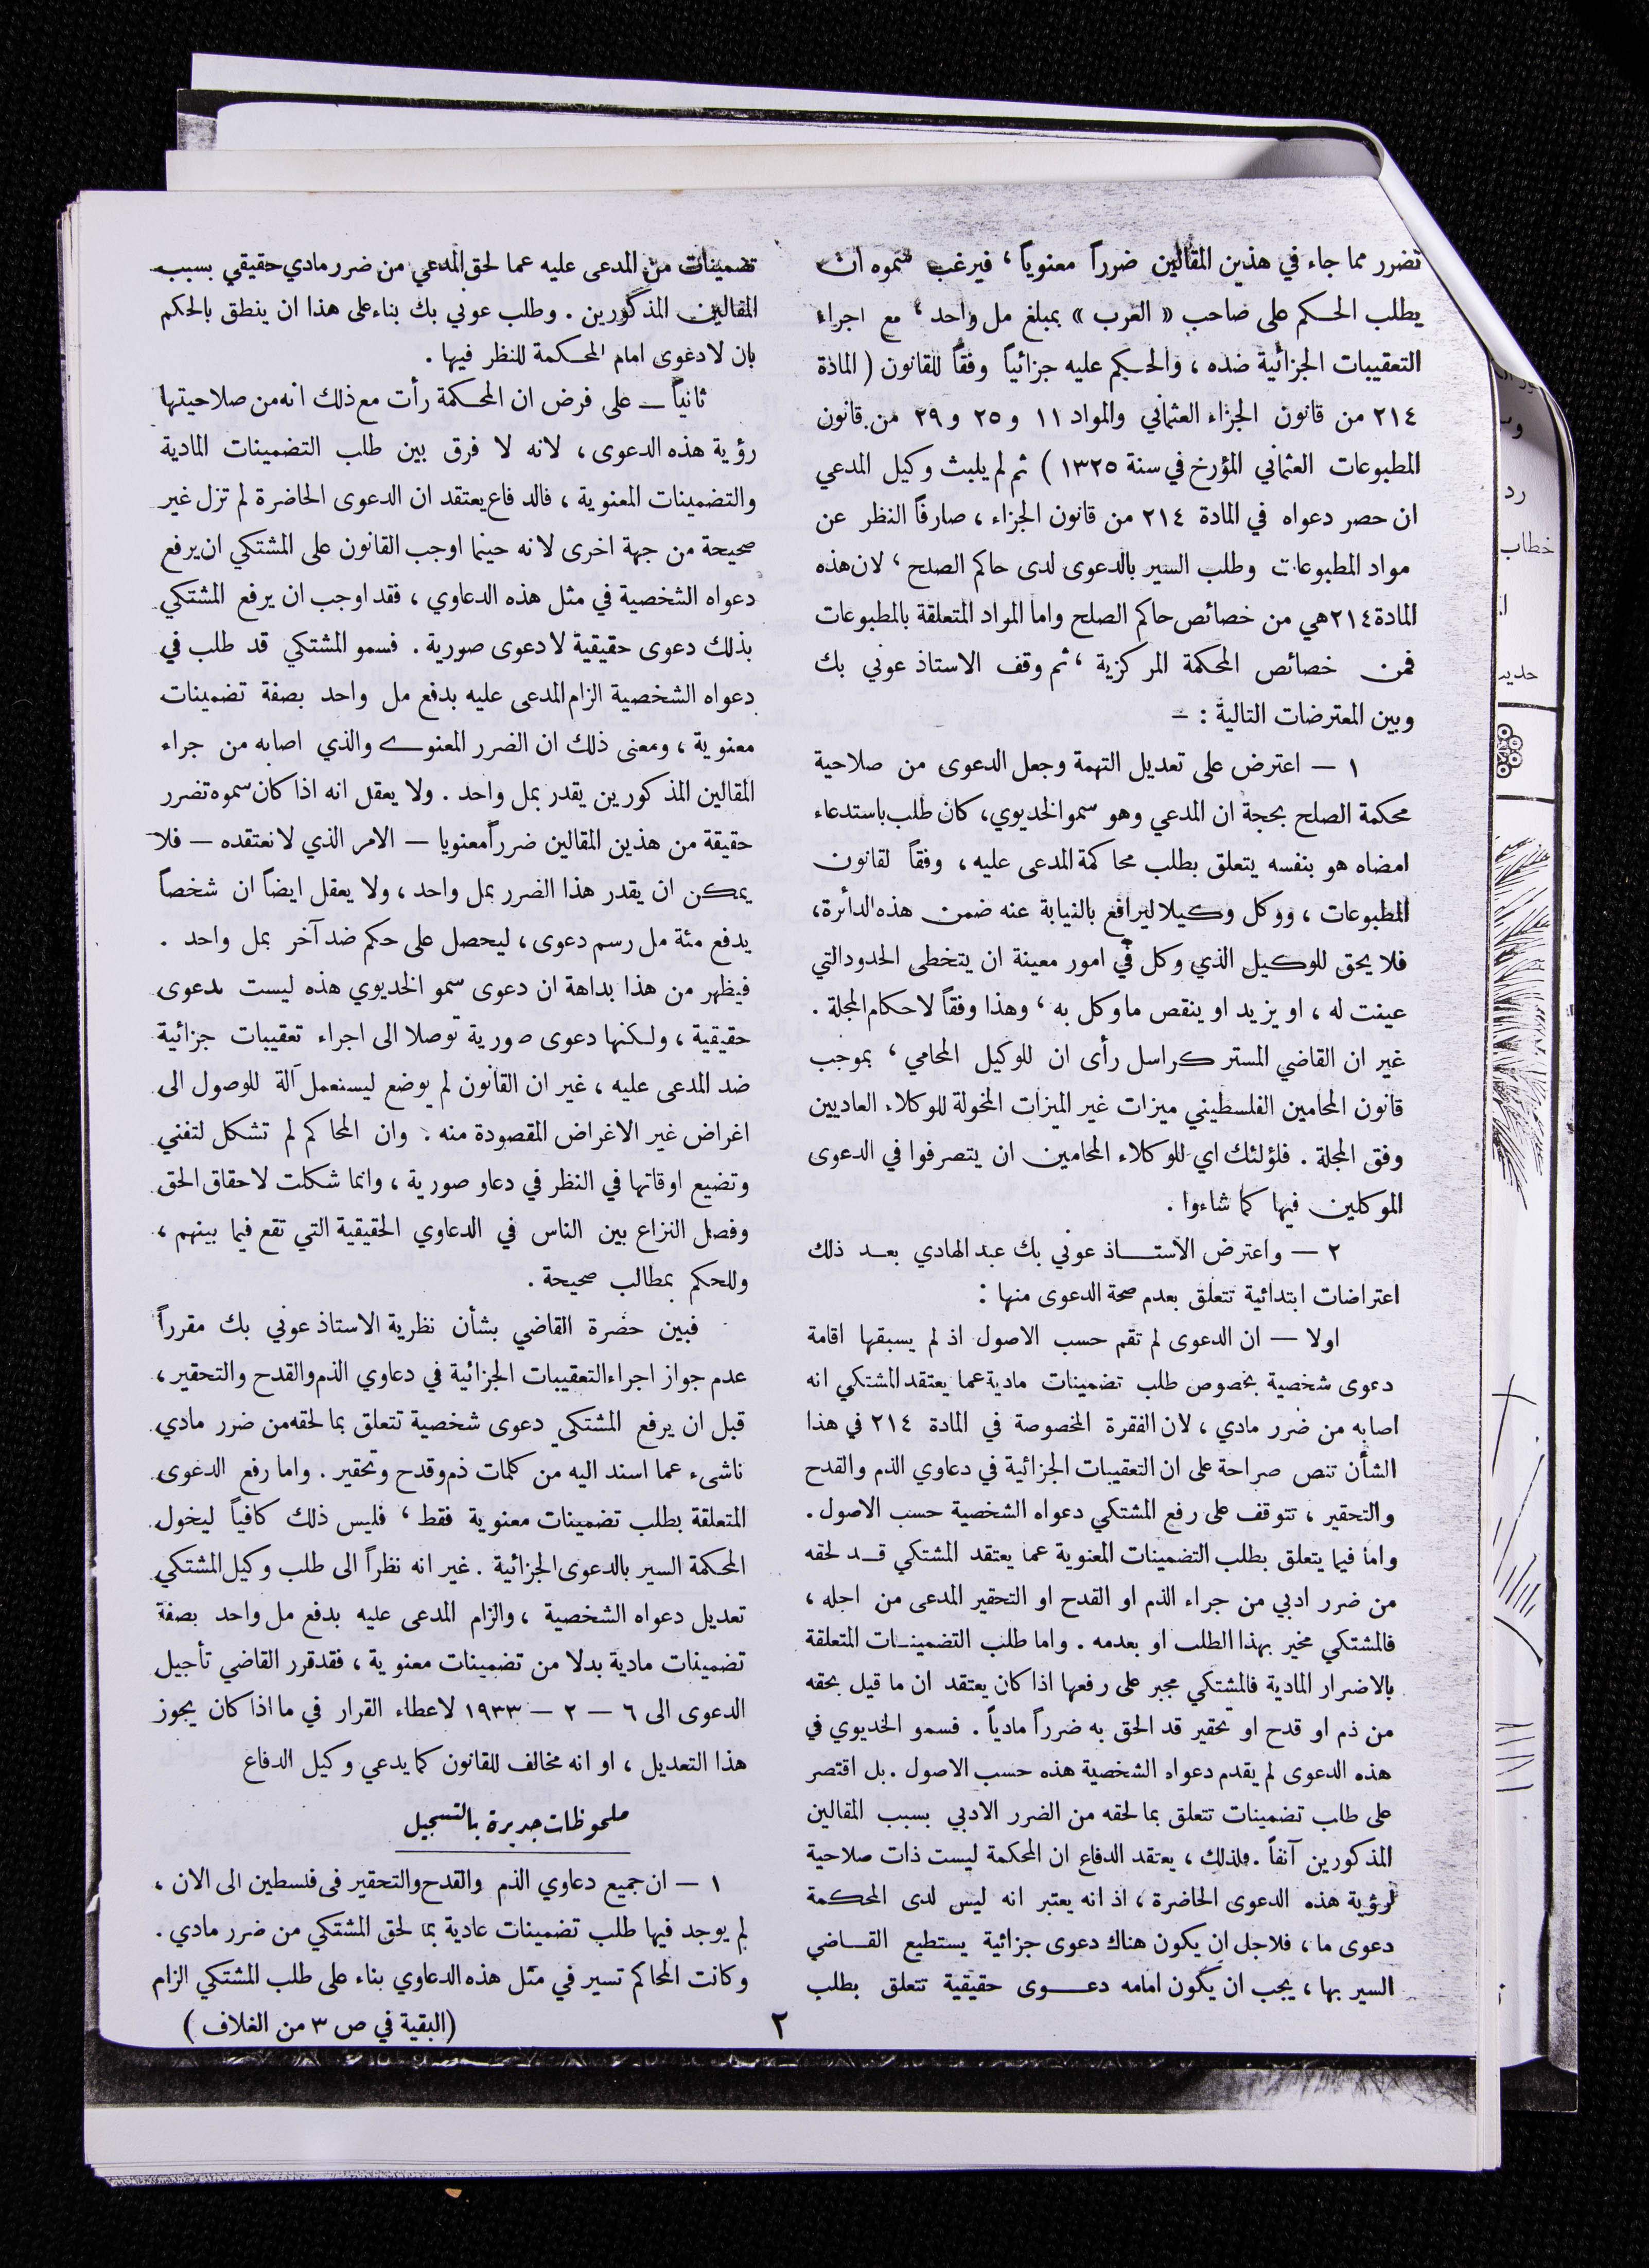 تضرر مما جاء في هذين المقالين ضرراً معنوياً ، فيرغب سموه ان
يطلب الحكم على صاحب « العرب » بمبلغ مل واحد ، مع اجراء
التعقيبات الجزائية ضده ، والحكم عليه جزائياً وفقاً للقانون ( المادة
٢١٤ من قانون الجزاء العثماني والمواد ١١ و ٢٥ و ٢٩ من قانون
المطبوعات العثماني المؤرخ في سنة ١٣٢٥ ) ثم لم يلبث وكيل المدعي
ان حصر دعواه في المادة ٢١٤ من قانون الجزاء ، صارفاً النظر عن
مواد المطبوعات وطلب السير بالدعوى لدى حاكم الصلح ، لان هذه
المادة ٢١٤ هي من خصائص حاكم الصلح واما المواد المتعلقة بالمطبوعات
فمن خصائص المحكمة المركزية ، ثم وقف الاستاذ عوني بك
وبين المعترضات التالية : –
١ — اعترض على تعديل التهمة وجعل الدعوى من صلاحية
محكمة الصلح بحجة ان المدعي وهو سمو الخديوي ، كان طلب باستدعاء
امضاه هو بنفسه يتعلق بطلب محاكمة المدعى عليه ، وفقاً لقانون
المطبوعات ، ووكل وكيلا ليرافع بالنيابة عنه ضمن هذه الدأئرة ،
فلا يحق للوكيل الذي وكل في امور معينة ان يتخطى الحدود التي
عينت له ، او يزيد او ينقص ما وكل به ، وهذا وفقاً لاحكام المجلة .
غير ان القاضي المستر كراسل رأى ان للوكيل المحامي ، بموجب
قانون المحامين الفلسطيني ميزات غير الميزات المخولة للوكلاء العاديين
وفق المجلة . فلؤلئك اي للوكلاء المحامين ان يتصرفوا في الدعوى
الموكلين فيها كما شاءوا .
٢ — واعترض الاستــاذ عوني بك عبد الهادي بعــد ذلك
اعتراضات ابتدائية تتعلق بعدم صحة الدعوى منها :
اولا — ان الدعوى لم تقم حسب الاصول اذ لم يسبقها اقامة
دعوى شخصية بخصوص طلب تضمينات مادية عما يعتقد المشتكي انه
اصابه من ضرر مادي ، لان الفقرة المخصوصة في المادة ٢١٤ في هذا
الشأن تنص صراحة على ان التعقيبات الجزائية في دعاوي الذم والقدح
والتحقير ، تتوقف على رفع المشتكي دعواه الشخصية حسب الاصول .
واما فيما يتعلق بطلب التضمينات المعنوية عما يعتقد المشتكي قــد لحقه
من ضرر ادبي من جراء الذم او القدح او التحقير المدعى من اجله ،
فالمشتكي مخير بهذا الطلب او بعدمه . واما طلب التضمينــات المتعلقة
بالاضرار المادية فالمشتكي مجبر على رفعها اذا كان يعتقد ان ما قيل بحقه
من ذم او قدح او تحقير قد الحق به ضرراً مادياً . فسمو الخديوي في
هذه الدعوى لم يقدم دعواه الشخصية هذه حسب الاصول . بل اقتصر
على طلب تضمينات تتعلق بما لحقه من الضرر الادبي بسبب المقالين
المذكورين آنفاً . ولذلك ، يعتقد الدفاع ان المحكمة ليست ذات صلاحية
لرؤية هذه الدعوى الحاضرة ، اذ انه يعتبر انه ليس لدى المحكمة
دعوى ما ، فلاجل ان يكون هناك دعوى جزائية يستطيع القــاضي
السير بها ، يجب ان يكون امامه دعــوى حقيقية تتعلق بطلب
تضمينات من المدعى عليه عما لحق المدعي من ضرر مادي حقيقي بسبب
المقالين المذكورين . وطلب عوني بك بناء على هذا ان ينطق بالحكم
بان لا دعوى امام المحكمة للنظر فيها .
ثانياً — على فرض ان المحكمة رأت مع ذلك انه من صلاحيتها
رؤية هذه الدعوى ، لانه لا فرق بين طلب التضمينات المادية
والتضمينات المعنوية ، فالدفاع يعتقد ان الدعوى الحاضرة لم تزل غير
صحيحة من جهة اخرى لانه حينما اوجب القانون على المشتكي ان يرفع
دعواه الشخصية في مثل هذه الدعاوي ، فقد اوجب ان يرفع المشتكي
بذلك دعوى حقيقية لا دعوى صورية . فسمو المشتكي قد طلب في
دعواه الشخصية الزام المدعى عليه بدفع مل واحد بصفة تضمينات
معنوية ، ومعنى ذلك ان الضرر المعنوي والذي اصابه من جراء
المقالين المذكورين يقدر بمل واحد . ولا يعقل انه اذا كان سموه تضرر
حقيقة من هذين المقالين ضرراً معنويا — الامر الذي لا نعتقده — فلا
يمكن ان يقدر هذا الضرر بمل واحد ، ولا يعقل ايضاً ان شخصاً
يدفع مئة مل رسم دعوى ، ليحصل على حكم ضد آخر بمل واحد .
فيظهر من هذا بداهة ان دعوى سمو الخديوي هذه ليست بدعوى
حقيقية ، ولكنها دعوى صورية توصلا الى اجراء تعقيبات جزائية
ضد المدعى عليه ، غير ان القانون لم يوضع ليستعمل آلة للوصول الى
اغراض غير الاغراض المقصودة منه . وان المحاكم لم تشكل لتفني
وتضيع اوقاتها في النظر في دعاو صورية ، وانما شكلت لاحقاق الحق
وفصل النزاع بين الناس في الدعاوي الحقيقية التي تقع فيما بينهم ،
وللحكم بمطالب صحيحة .
فبين حضرة القاضي بشأن نظرية الاستاذ عوني بك مقرراً
عدم جواز اجراء التعقيبات الجزائية في دعاوي الذم والقدح والتحقير ،
قبل ان يرفع المشتكي دعوى شخصية تتعلق بما لحقه من ضرر مادي
ناشىء عما اسند اليه من كلمات ذم وقدح وتحقير . واما رفع الدعوى
المتعلقة بطلب تضمينات معنوية فقط ، فليس ذلك كافياً ليخول
المحكمة السير بالدعوى الجزائية . غير انه نظراً الى طلب وكيل المشتكي
تعديل دعواه الشخصية ، والزام المدعى عليه بدفع مل واحد بصفة
تضمينات مادية بدلا من تضمينات معنوية ، فقد قرر القاضي تأجيل
الدعوى الى ٦ — ٢ — ١٩٣٣ لاعطاء القرار في ما اذا كان يجوز
هذا التعديل ، او انه مخالف للقانون كما يدعي وكيل الدفاع
ملحوظات جديرة بالتسجيل
١ — ان جميع دعاوي الذم والقدح والتحقير في فلسطين الى الان ،
لم يوجد فيها طلب تضمينات عادية بما لحق المشتكي من ضرر مادي .
وكانت المحاكم تسير في مثل هذه الدعاوي بناء على طلب المشتكي الزام
(البقية في ص ٣ من الغلاف )
٢
رد
خطاب